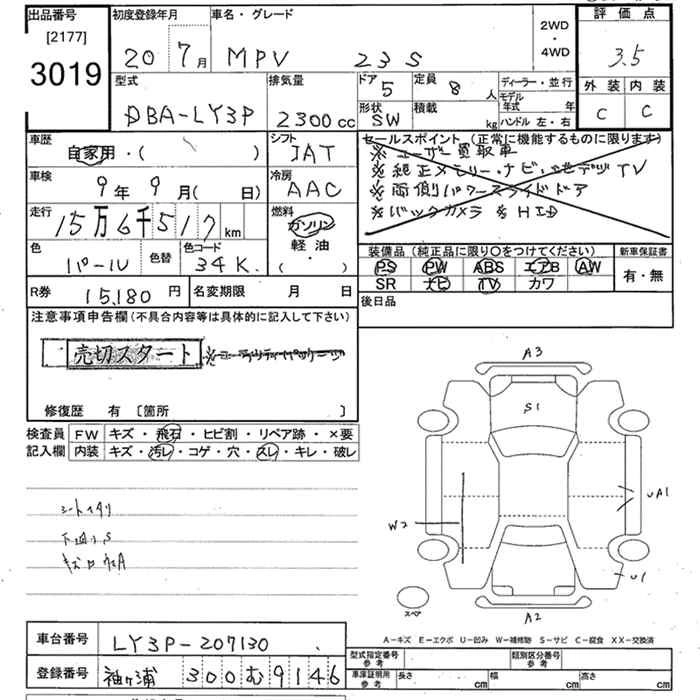 出品番号 初度登録年月 車名・グレード 2WD・4WD 評価点
[2177]
3019 20 7月 MPV 23S 3.5
型式 排気量 ドア 5 定員 8人 ディーラー・並行 外装 内装
DBA-LY3P 2300cc 形状 SW 積載 kg モデル年式 年 C C
ハンドル 左・右
車歴 シフト セールスポイント (正常に機能するものに限ります)
自家用・( ) IAT ※ユーザー買取車
車検 冷房 ※純正メモリーナビ・地デジTV
9年9月( 日) AAC ※両側パワースライドドア
走行 燃料 ※バックカメラ ※HID
15万6千517km ガソリン
軽油
( ・ )
色 色替 色コード 装備品 (純正品に限り〇をつけてください) 新車保証書
パール 34K. PS PW ABS エアB AW 有・無
SR ナビ TV カワ
R券 15,180円 名変期限 月 日 後日品
注意事項申告欄(不具合内容等は具体的に記入して下さい)
売切スタート
修復歴 有 〔箇所 〕
検査員 FW キズ・飛石・ヒビ割・リペア跡・×要
記入欄 内装 キズ・汚レ・コゲ・穴・スレ・キレ・破レ
A3
S1
シートヘタリ
UA1
W2
下廻りS
U1
スペア
A2
A-キズ E-エクボ U-凹み W-補修跡 S-サビ C-腐食 XX-交換済
車台番号 LY3P-207130
型式指定番号 参考 類別区分番号 参考
登録番号 袖ヶ浦 300む9146
車庫証明用 参考 長さ cm 幅 cm 高さ cm